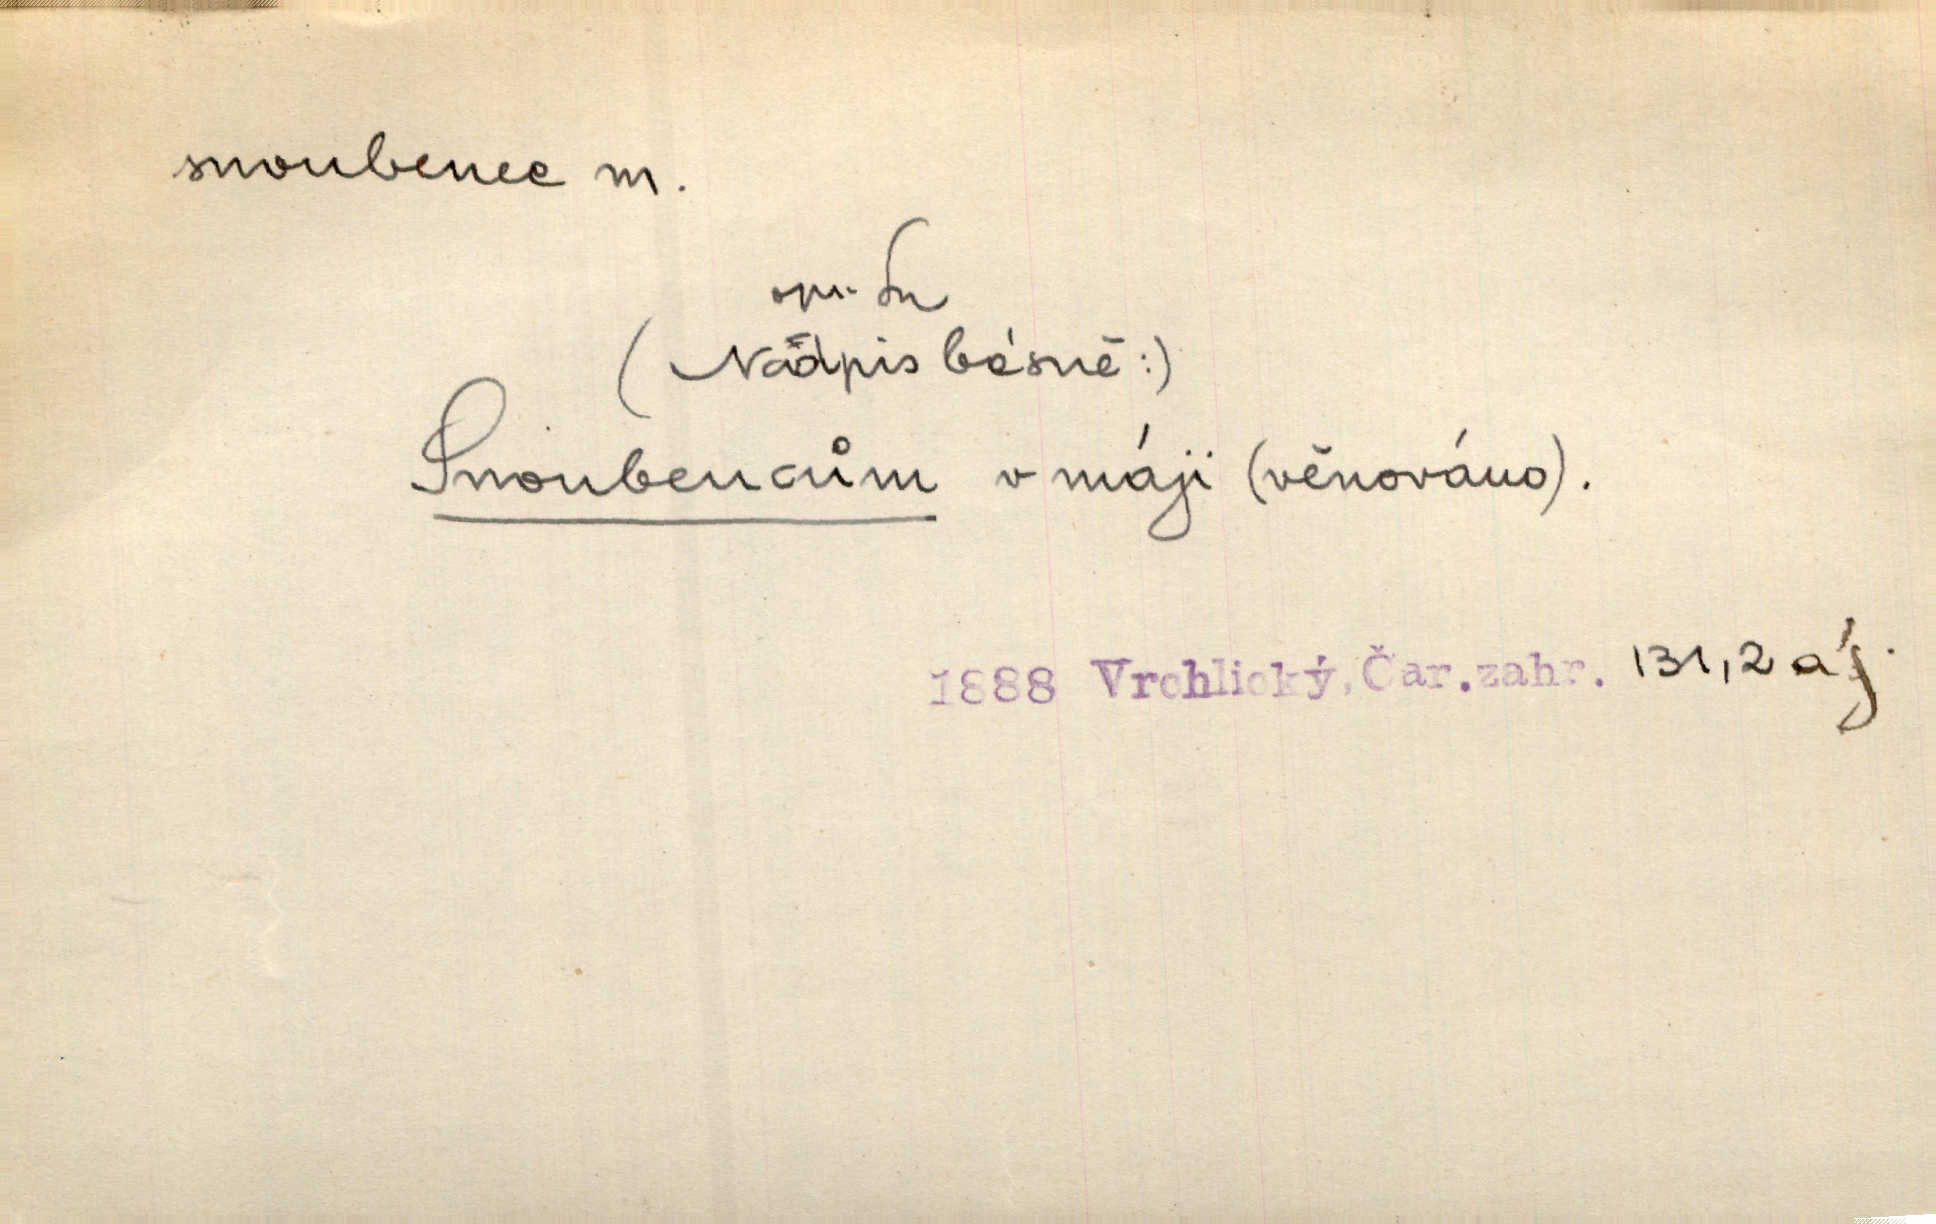 snoubenec m.
(Nadpis básně:)
Snoubencům v máji (věnováno).
1888 Vrchlický, Čar.zahr. 131,2 a j.